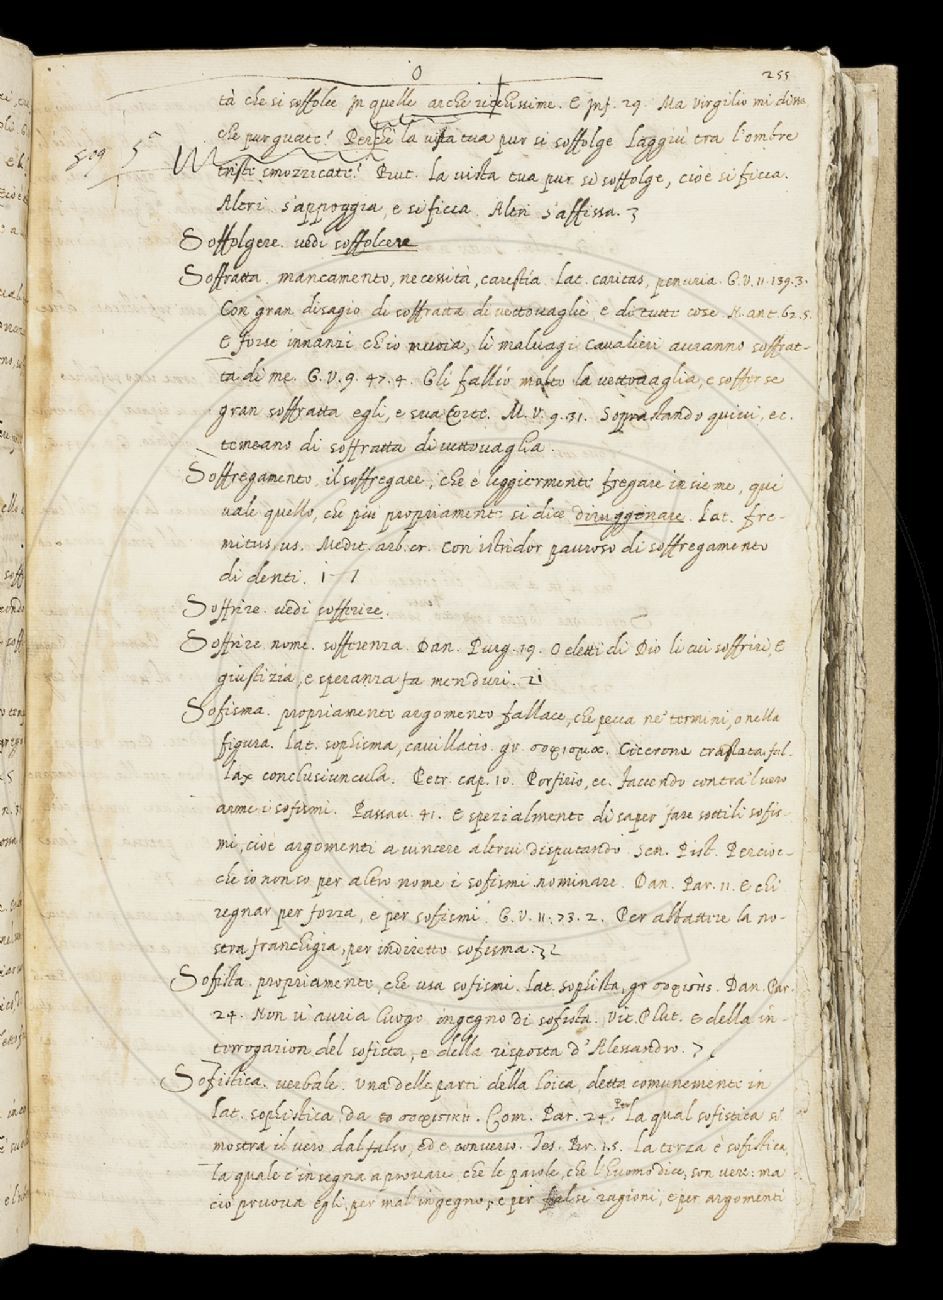 O
255
tà che si soffolce in quelle arche ricchissime. E Inf. 29. Ma Virgilio mi disse,
che pur guate? Perchè la vista tua pur si soffolge Laggiù tra l'ombre
509 5
triste smozzicate? But. La vista tua pur si soffolge, cioè si ficca.
Altri s'appoggia, e si ficca. Altri s'affissa.
Soffolgere. vedi soffolcere
Soffratta. mancamento, necessità, carestia. Lat. caritas, penuria. G.V. 11. 139. 3.
Con gran disagio di soffratta di vettovaglie e di tutte cose. N. ant. 62. 5.
E forse innanzi ch'io muoia, li malvagi Cavalieri avranno soffrat-
ta di me. G.V. 9. 47. 4. Gli fallío molto la vettovaglia, e sofferse
gran soffratta egli, e sua Corte. M.V. 9. 31. Soprastando quivi, ec.
temeano di soffratta di vettovaglia.
Soffregamento. il soffregare, che è leggiermente fregare insieme, qui
vale quello, che più propriamente si dice diruggenare. Lat. fre-
mitus, us. Medit. arb. cr. Con istridor pauroso di soffregamento
di denti.
Soffrire. vedi sofferire.
Soffrire nome. sofferenza. Dan. Purg. 19. O eletti di Dio li cui soffriri, E
giustizia, e speranza fa men duri.
Sofisma. propriamente argomento fallace, che pecca ne' termini, o nella
figura. Lat. sophisma, cavillatio. gr. σοφισμα. Cicerone traslata fal-
lax conclusiuncula. Petr. cap. 10. Porfirio, ec. Facendo contra 'l vero
arme i sofismi. Passav. 41. E spezialmente di saper fare sottili sofis-
mi, cioè argomenti a vincere altrui disputando. Sen. Pist. Percioc-
che io non so per altro nome i sofismi nominare. Dan. Par. 11. E chi
regnar per forza, e per sofismi. G.V. 11. 73. 2. Per abbattere la no-
stra franchigia, per indiretto sofisma.
Sofista. propriamente, che usa sofismi. Lat. sophista, gr σοφιστὴς. Dan. Par.
24. Non v' avria luogo ingegno di sofista. Vit. Plut. E della in-
terrogazion del sofista, e della risposta d'Alessandro.
Sofistica. verbale. Una delle parti della loica, detta comunemente in
lat. sophistica, da σοφιστική. Com. Par. 24. Per la qual sofistica si
mostra il vero dal falso, ed e converso. Tes. Br. 1. 5. La terza è sofistica,
la quale c'insegna a provare, che le parole, che l'huomo dice, son vere: ma
ciò pruova egli per mal' ingegno, e per falsi ragioni, e per argomenti